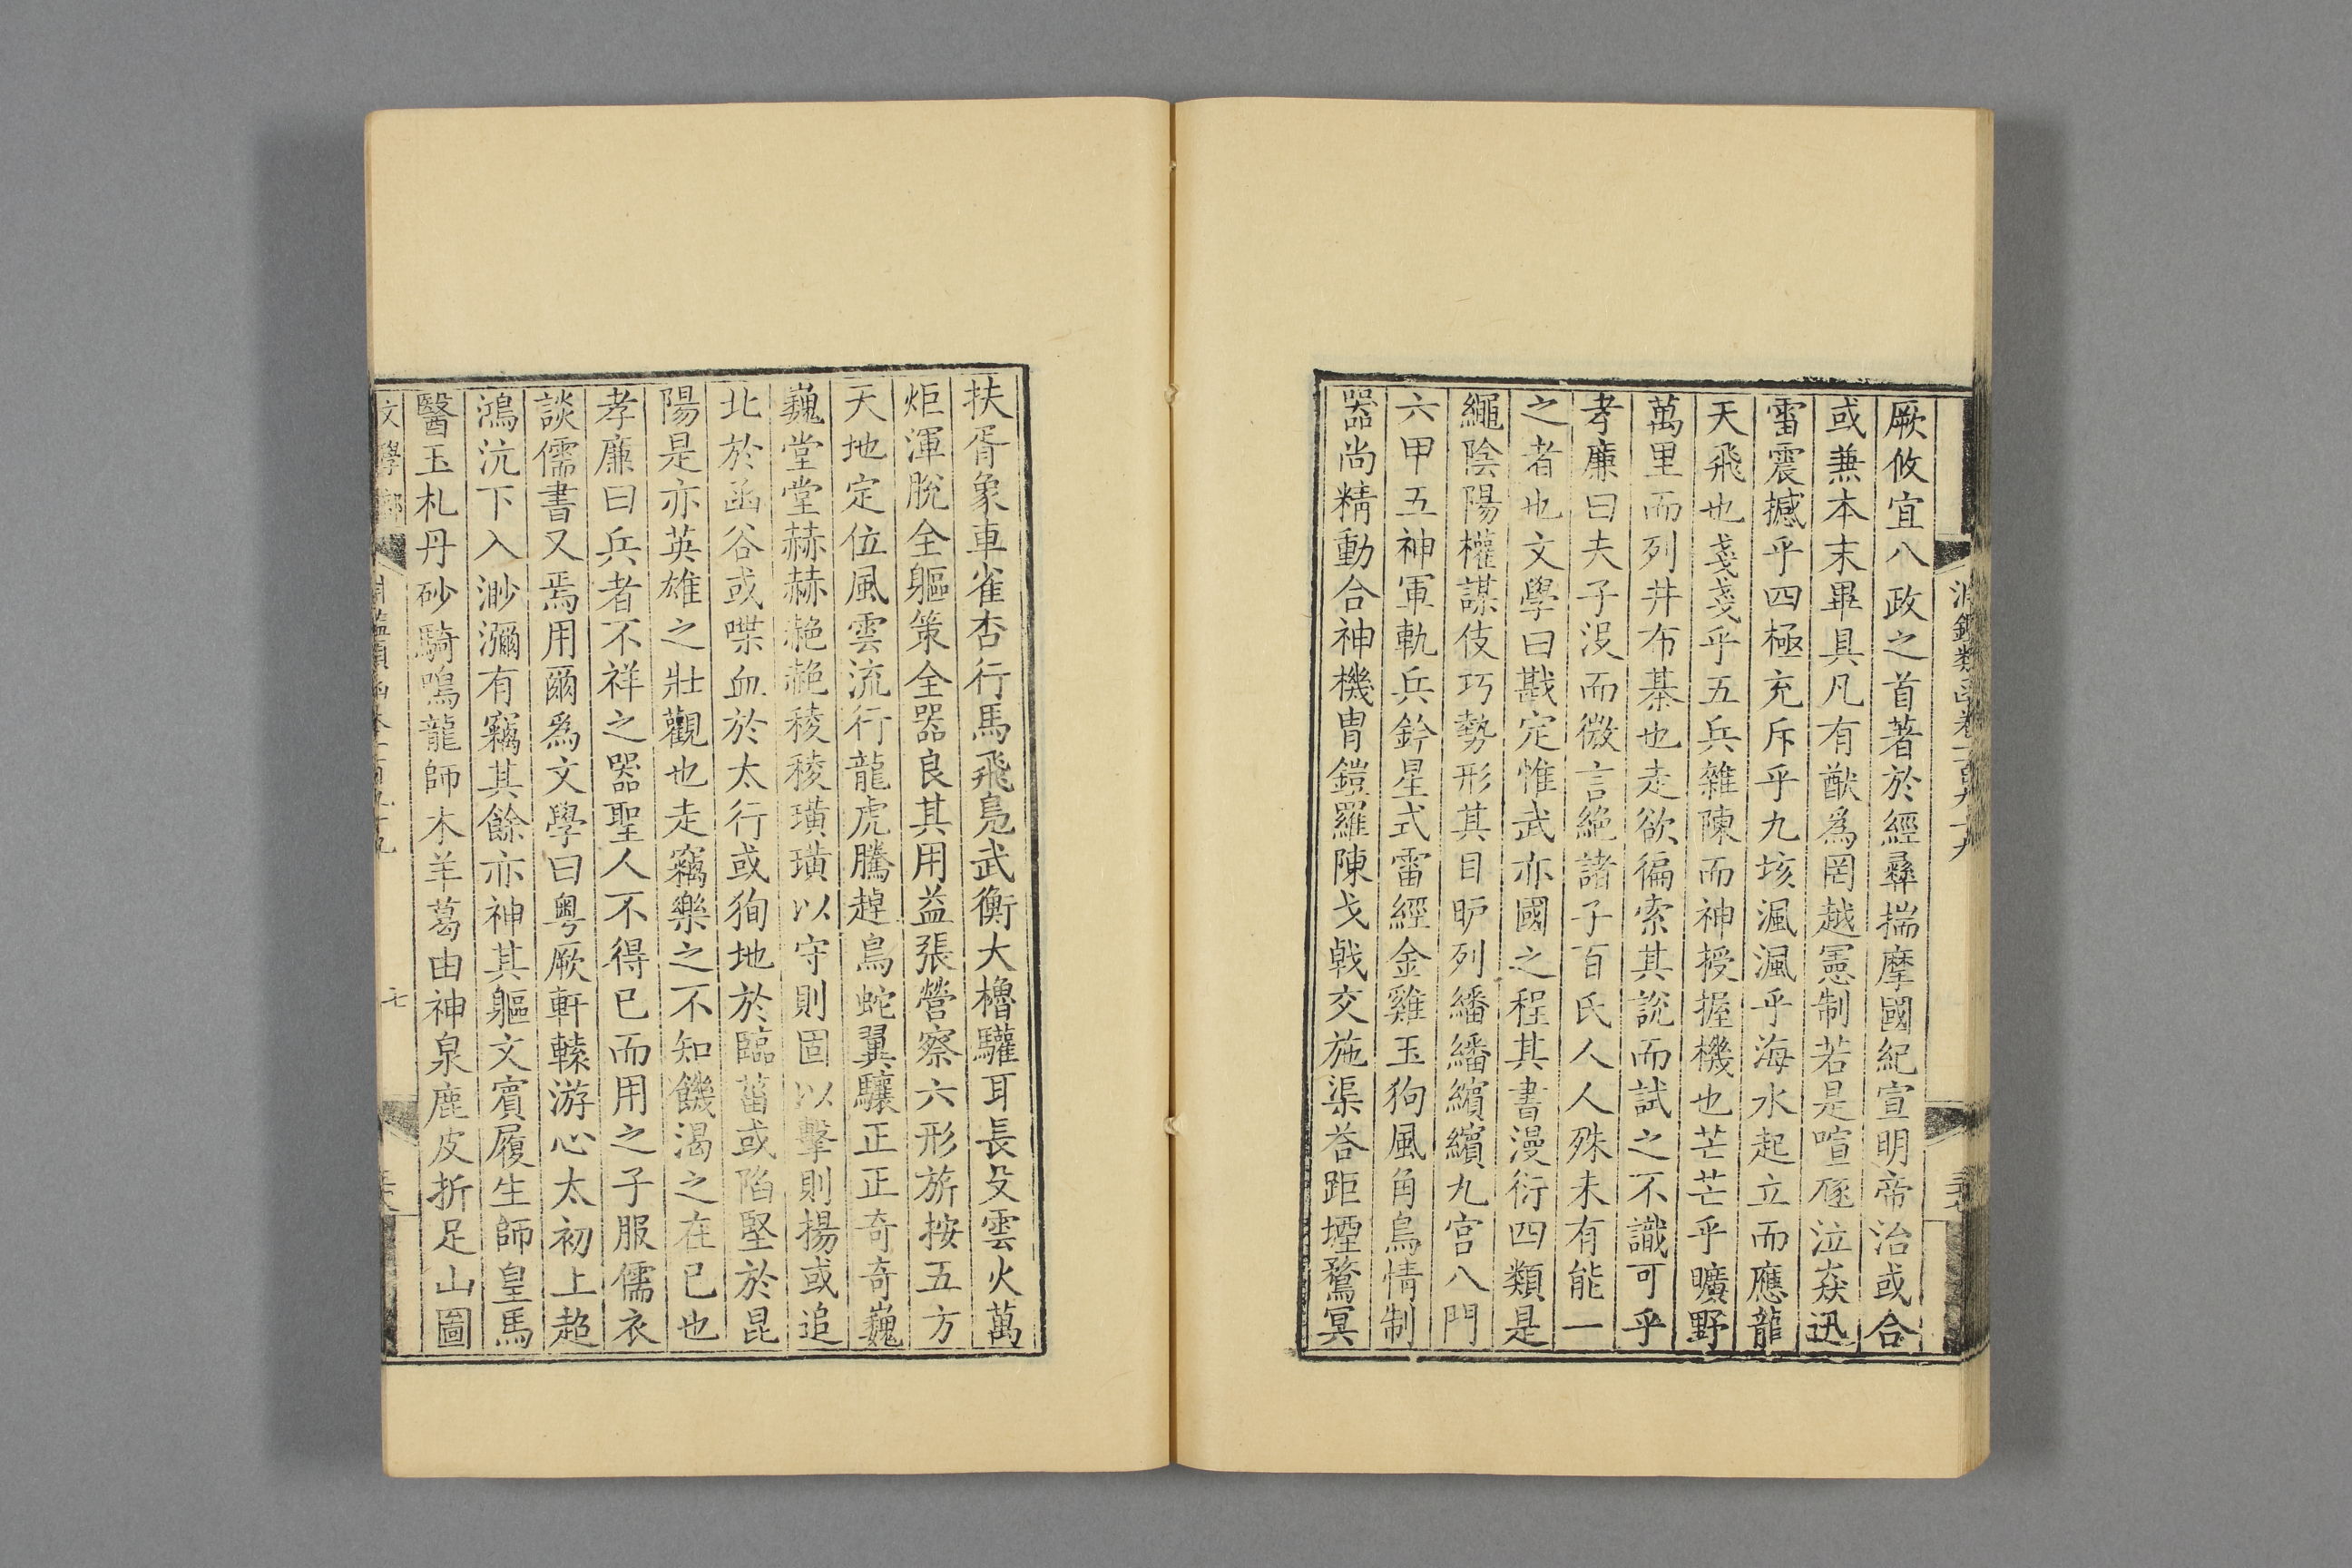 厥攸宜八政之首著於經彝揣摩國紀宣明帝治或合
或兼本末畢具凡有猷爲罔越憲制若是喧豗泣猋迅
雷震撼乎四極充斥乎九垓渢渢乎海水起立而應龍
天飛也戔戔乎五兵雜陳而神授握機也芒芒乎曠野
萬里而列井布棊也走欲徧索其說而試之不識可乎
孝廉曰夫子沒而微言絕諸子百氏人人殊未有能一
之者也文學曰戡定惟武亦國之程其書漫衍四類是
繩陰陽權謀伎巧勢形其目昈列繙繙繽繽九宮八門
六甲五神軍軌兵鈐星式雷經金雞玉狗風角鳥情制
器尚精動合神機冑鎧羅陳戈戟交施渠荅距堙鶩冥
扶胥象車雀杏行馬飛鳧武衡大櫓驩耳長殳雲火萬
炬渾脫全軀策全器良其用益張營察六形旂按五方
天地定位風雲流行龍虎騰趠鳥蛇翼驤正正奇奇巍
巍堂堂赫赫赩赩稜稜璜璜以守則固以擊則揚或追
北於函谷或喋血於太行或狥地於臨菑或陷堅於昆
陽是亦英雄之壯觀也走竊樂之不知饑渴之在已也
孝廉曰兵者不祥之器聖人不得已而用之子服儒衣
談儒書又焉用爾爲文學曰粤厥軒轅游心太初上超
鴻沆下入渺瀰有竊其餘亦神其軀文賓履生師皇馬
醫玉札丹砂騎鳴龍師木羊葛由神泉鹿皮折足山圖